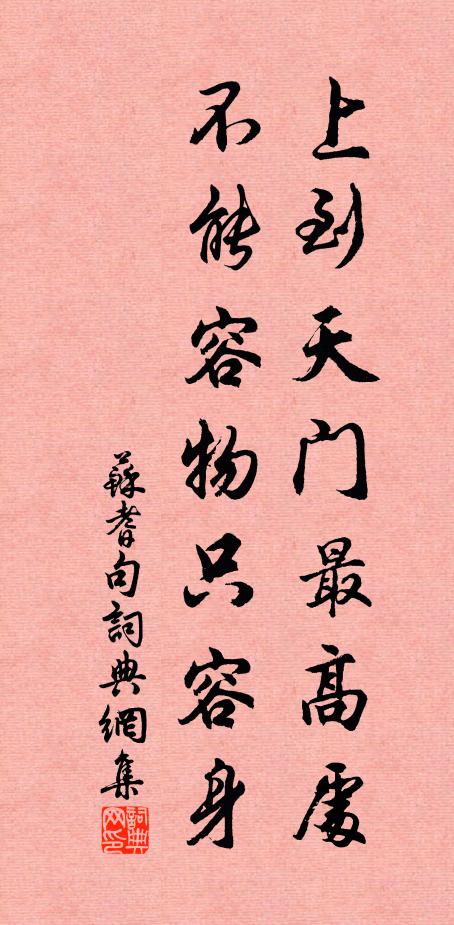 上到天门最高處
不能容物只容身
蘇耆句詞典網集
詞典网印